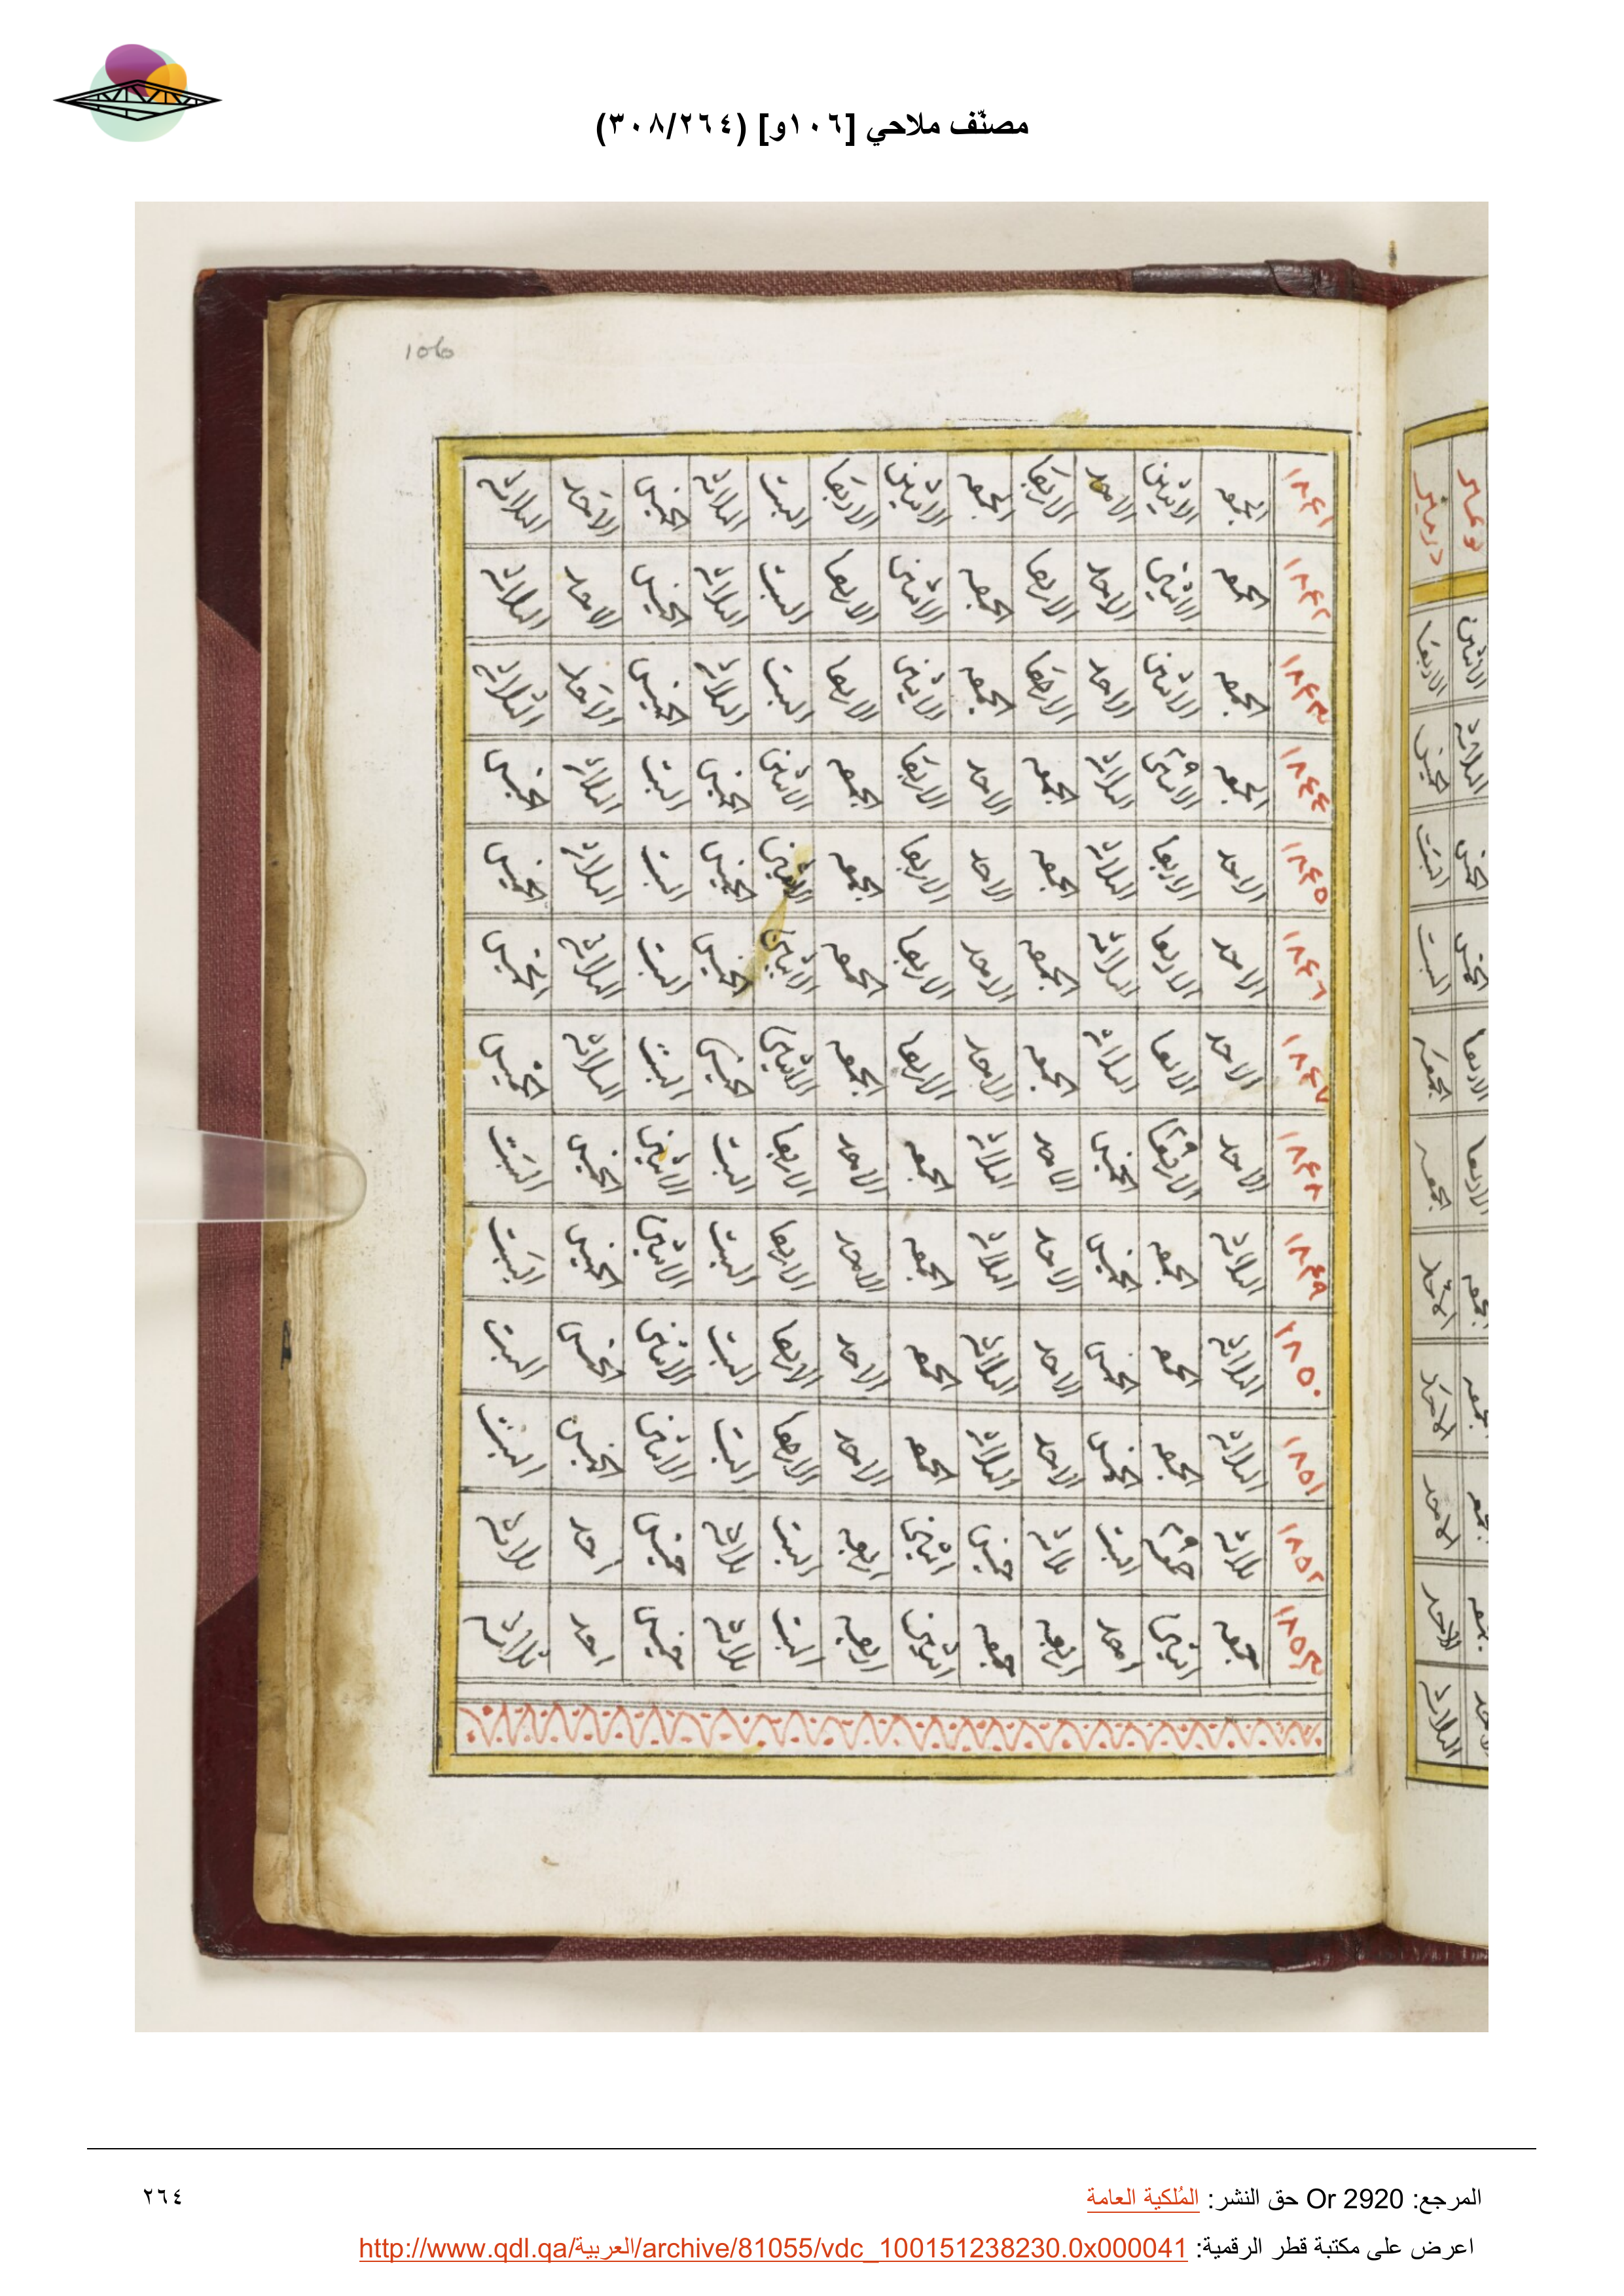 مصنّف ملاحي [١٠٦و] (٣٠٨/٢٦٤)
106
١٨٤١ الجمعه الاثنين الاحد الاربعا الجمعه الاثنين الاربعا السبت الثلاثه الخميس الاحد الثلاثه
١٨٤٢ الجمعه الاثنين الاحد الاربعا الجمعه الاثنين الاربعا السبت الثلاثه الخميس الاحد الثلاثه
١٨٤٣ الجمعه الاثنين الاحد الاربعا الجمعه الاثنين الاربعا السبت الثلاثه الخميس الاحد الثلاثه
١٨٤٤ الجمعه الاثنين الثلاثه الجمعه الاحد الاربعا الجمعه الاثنين الخميس السبت الثلاثه الخميس
١٨٤٥ الاحد الاربعا الثلاثه الجمعه الاحد الاربعا الجمعه الاثنين الخميس السبت الثلاثه الخميس
١٨٤٦ الاحد الاربعا الثلاثه الجمعه الاحد الاربعا الجمعه الاثنين الخميس السبت الثلاثه الخميس
١٨٤٧ الاحد الاربعا الثلاثه الجمعه الاحد الاربعا الجمعه الاثنين الخميس السبت الثلاثه الخميس
١٨٤٨ الاحد الاربعا الخميس الاحد الثلاثه الجمعه الاحد الاربعا السبت الاثنين الخميس السبت
١٨٤٩ الثلاثه الجمعه الخميس الاحد الثلاثه الجمعه الاحد الاربعا السبت الاثنين الخميس السبت
١٨٥٠ الثلاثه الجمعه الخميس الاحد الثلاثه الجمعه الاحد الاربعا السبت الاثنين الخميس السبت
١٨٥١ الثلاثه الجمعه الخميس الاحد الثلاثه الجمعه الاحد الاربعا السبت الاثنين الخميس السبت
١٨٥٢ ثلاثه جمعه السبت ثلاثه خميس اثنين اربعه السبت ثلاثه خميس احد ثلاثه
١٨٥٣ جمعه اثنين احد اربعه جمعه اثنين اربعه السبت ثلاثه خميس احد ثلاثه
المرجع: Or 2920 حق النشر: المُلكية العامة
٢٦٤
اعرض على مكتبة قطر الرقمية: http://www.qdl.qa/العربية/archive/81055/vdc_100151238230.0x000041